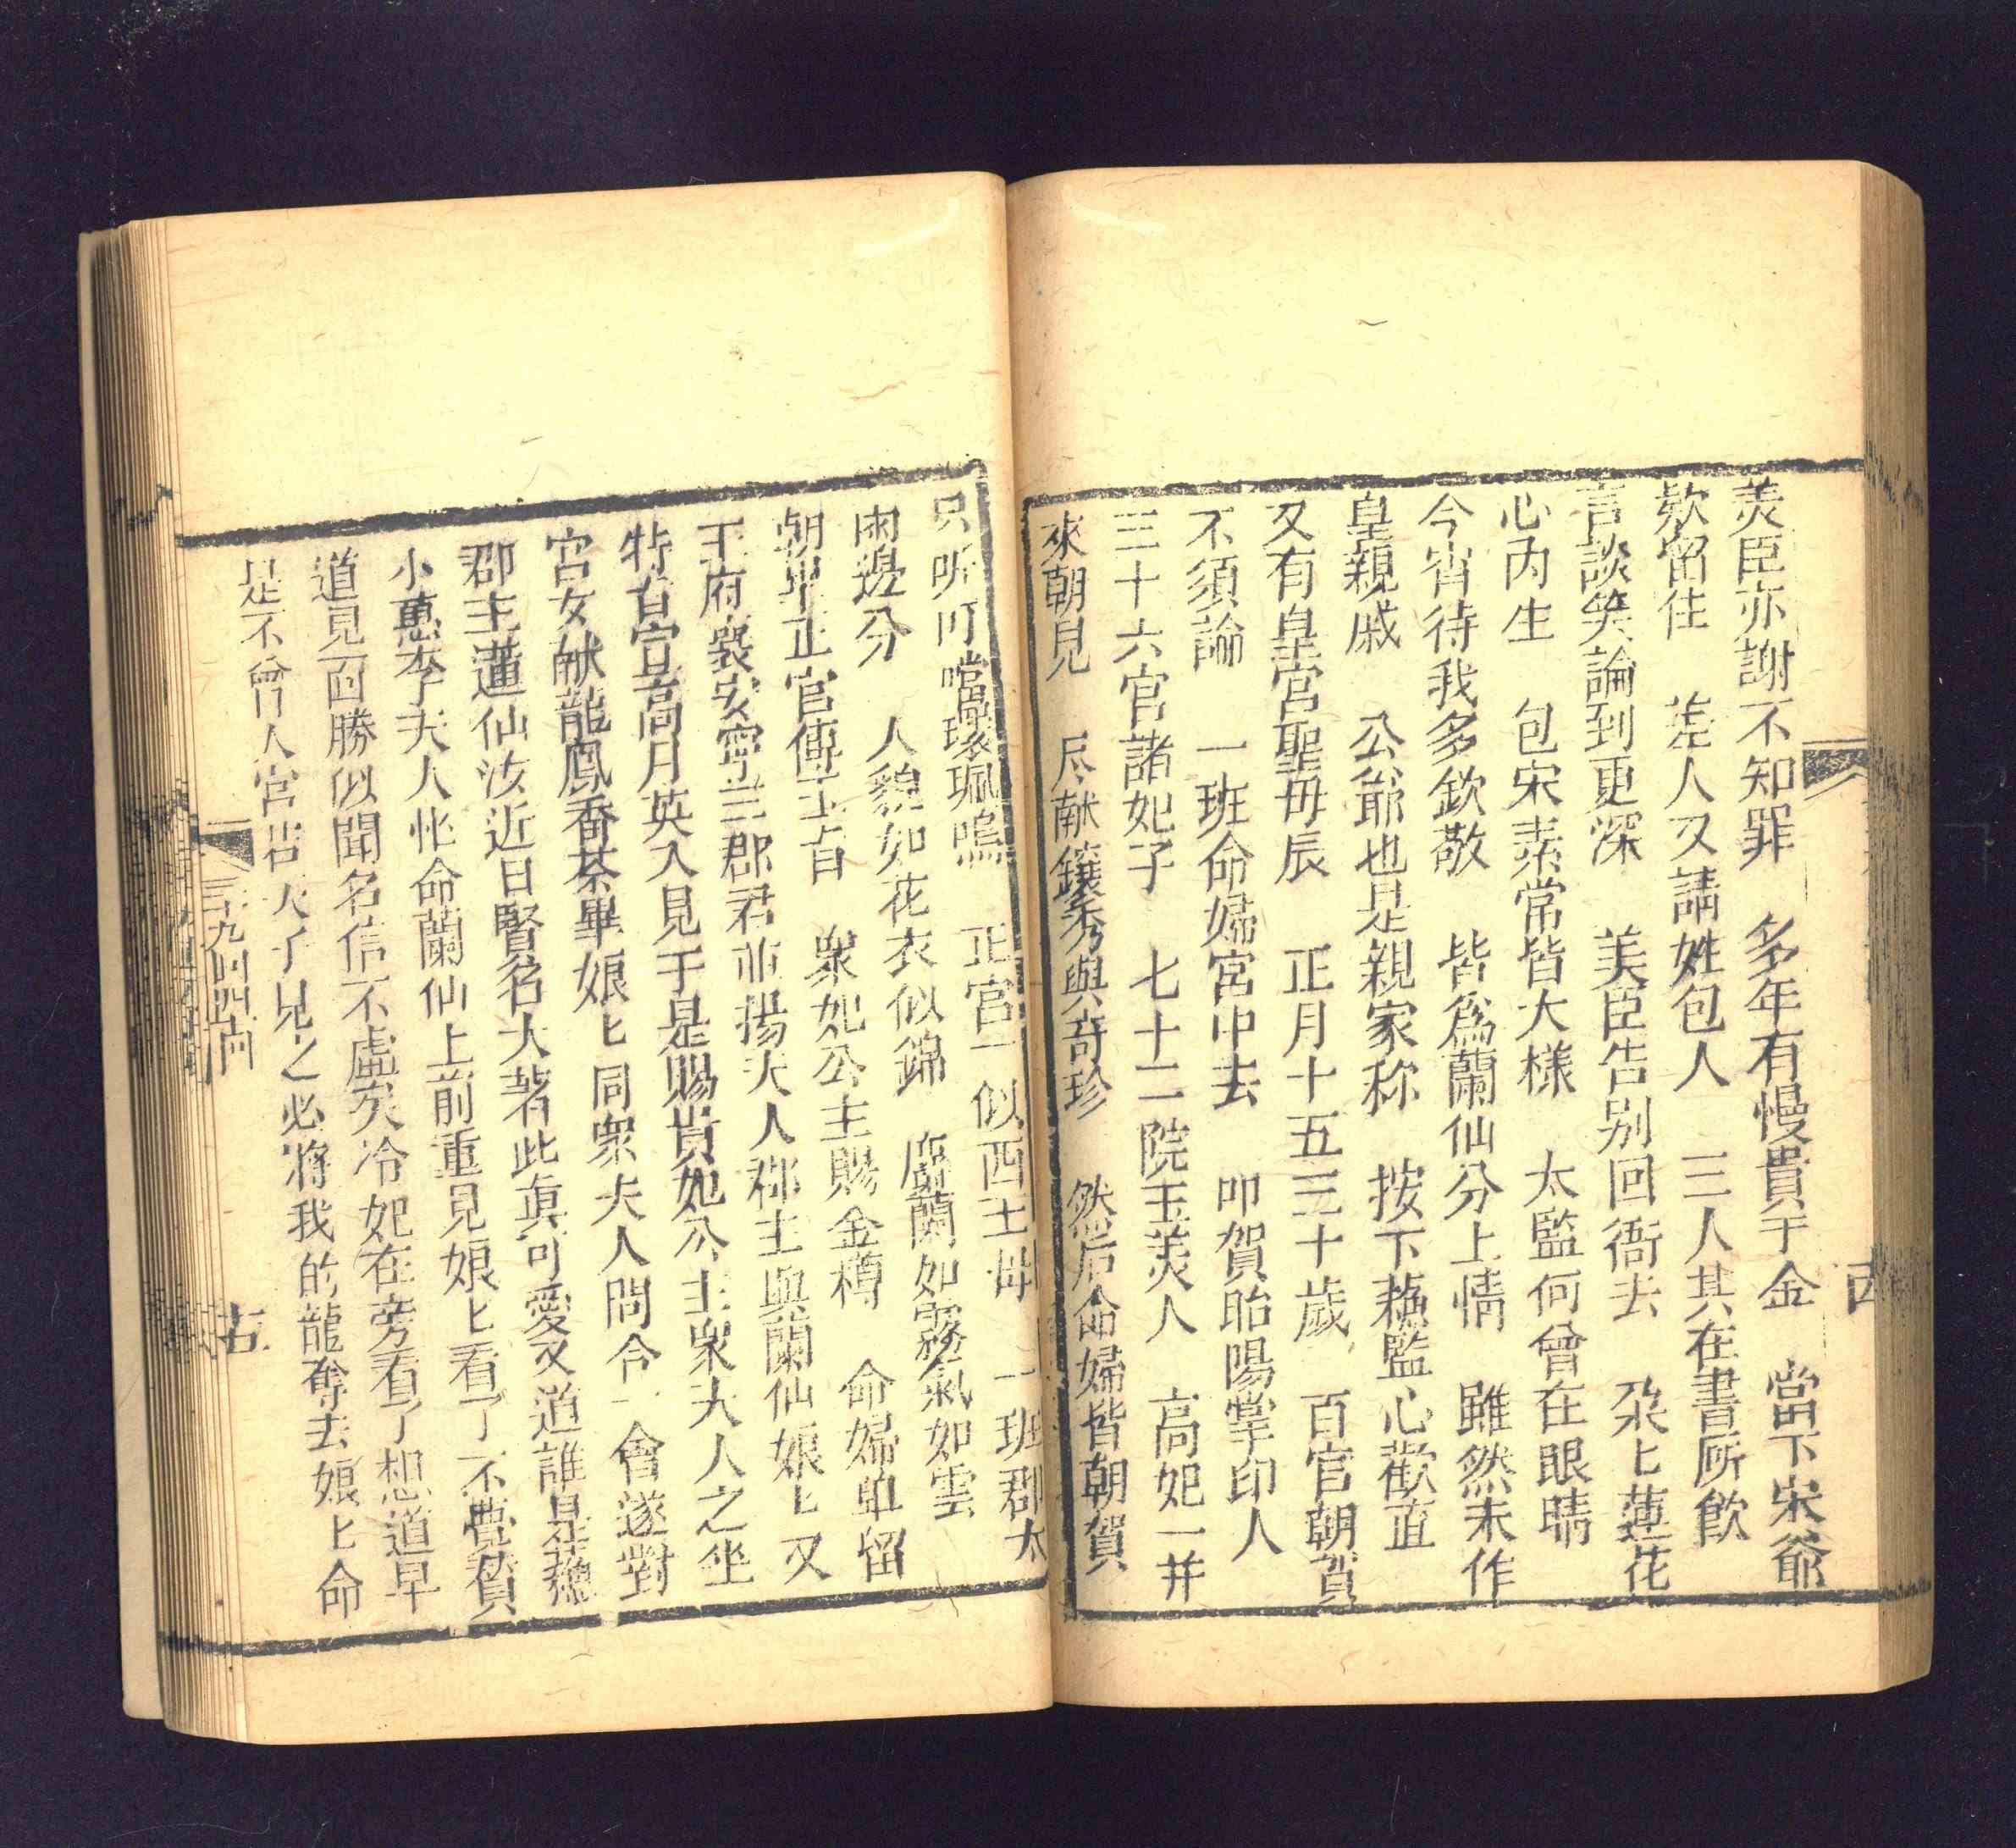 美臣亦謝不知罪 多年有慢貴千金 當下宋爺
欵留住 差人又請姓包人 三人共在書厮飲
言談笑論到更深 美臣告别回衙去 朶匕蓮花
心内生 包宋素常皆大樣 太監何曾在眼睛
今宵待我多欽敬 皆為蘭仙分上情 雖然未作
皇親戚 公爺也是親家称 按下蘓監心歡直
又有皇宮聖母辰 正月十五三十歲 百官朝賀
不須論 一班命婦宮中去 叩賀昭陽掌印人
三十六宮諸妃子 七十二院玉美人 高妃一并
來朝見 尽献鑲秀與奇珍 然后命婦皆朝賀
只听叮噹環珮鳴 正宮一似西王母 一班郡太
兩邊分 人貌如花衣似錦 麝蘭如霧氣如雲
朝畢正宮傳玉旨 衆妃公主賜金樽 命婦单留
王府裴安寧三郡君並揚夫人郡主與蘭仙娘匕又
特旨宣高月英入見于是賜貴妃公主衆夫人之坐
宮女献龍鳳香茶畢娘匕同衆夫人問答一會遂對
郡主蓮仙汝近日賢名大著此真可愛又道誰是蘓
小蕙李夫人忙命蘭仙上前重見娘匕看了不覺賛
道見面勝似聞名信不虛矣冷妃在旁看了想道早
是不曾入宮若天子見之必將我的龍奪去娘匕命
四
十五